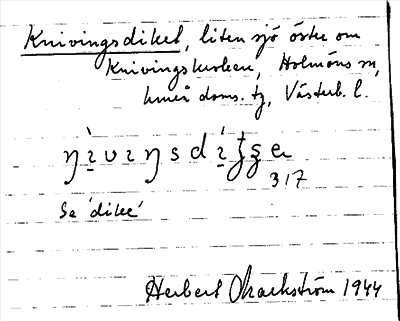 Knivingsdiket, liten sjö öster om
Knivingskurken, Holmöns sn,
Umeå doms. tg, Västerb. l.
317
Se 'dike'
Herbert Markström 1944